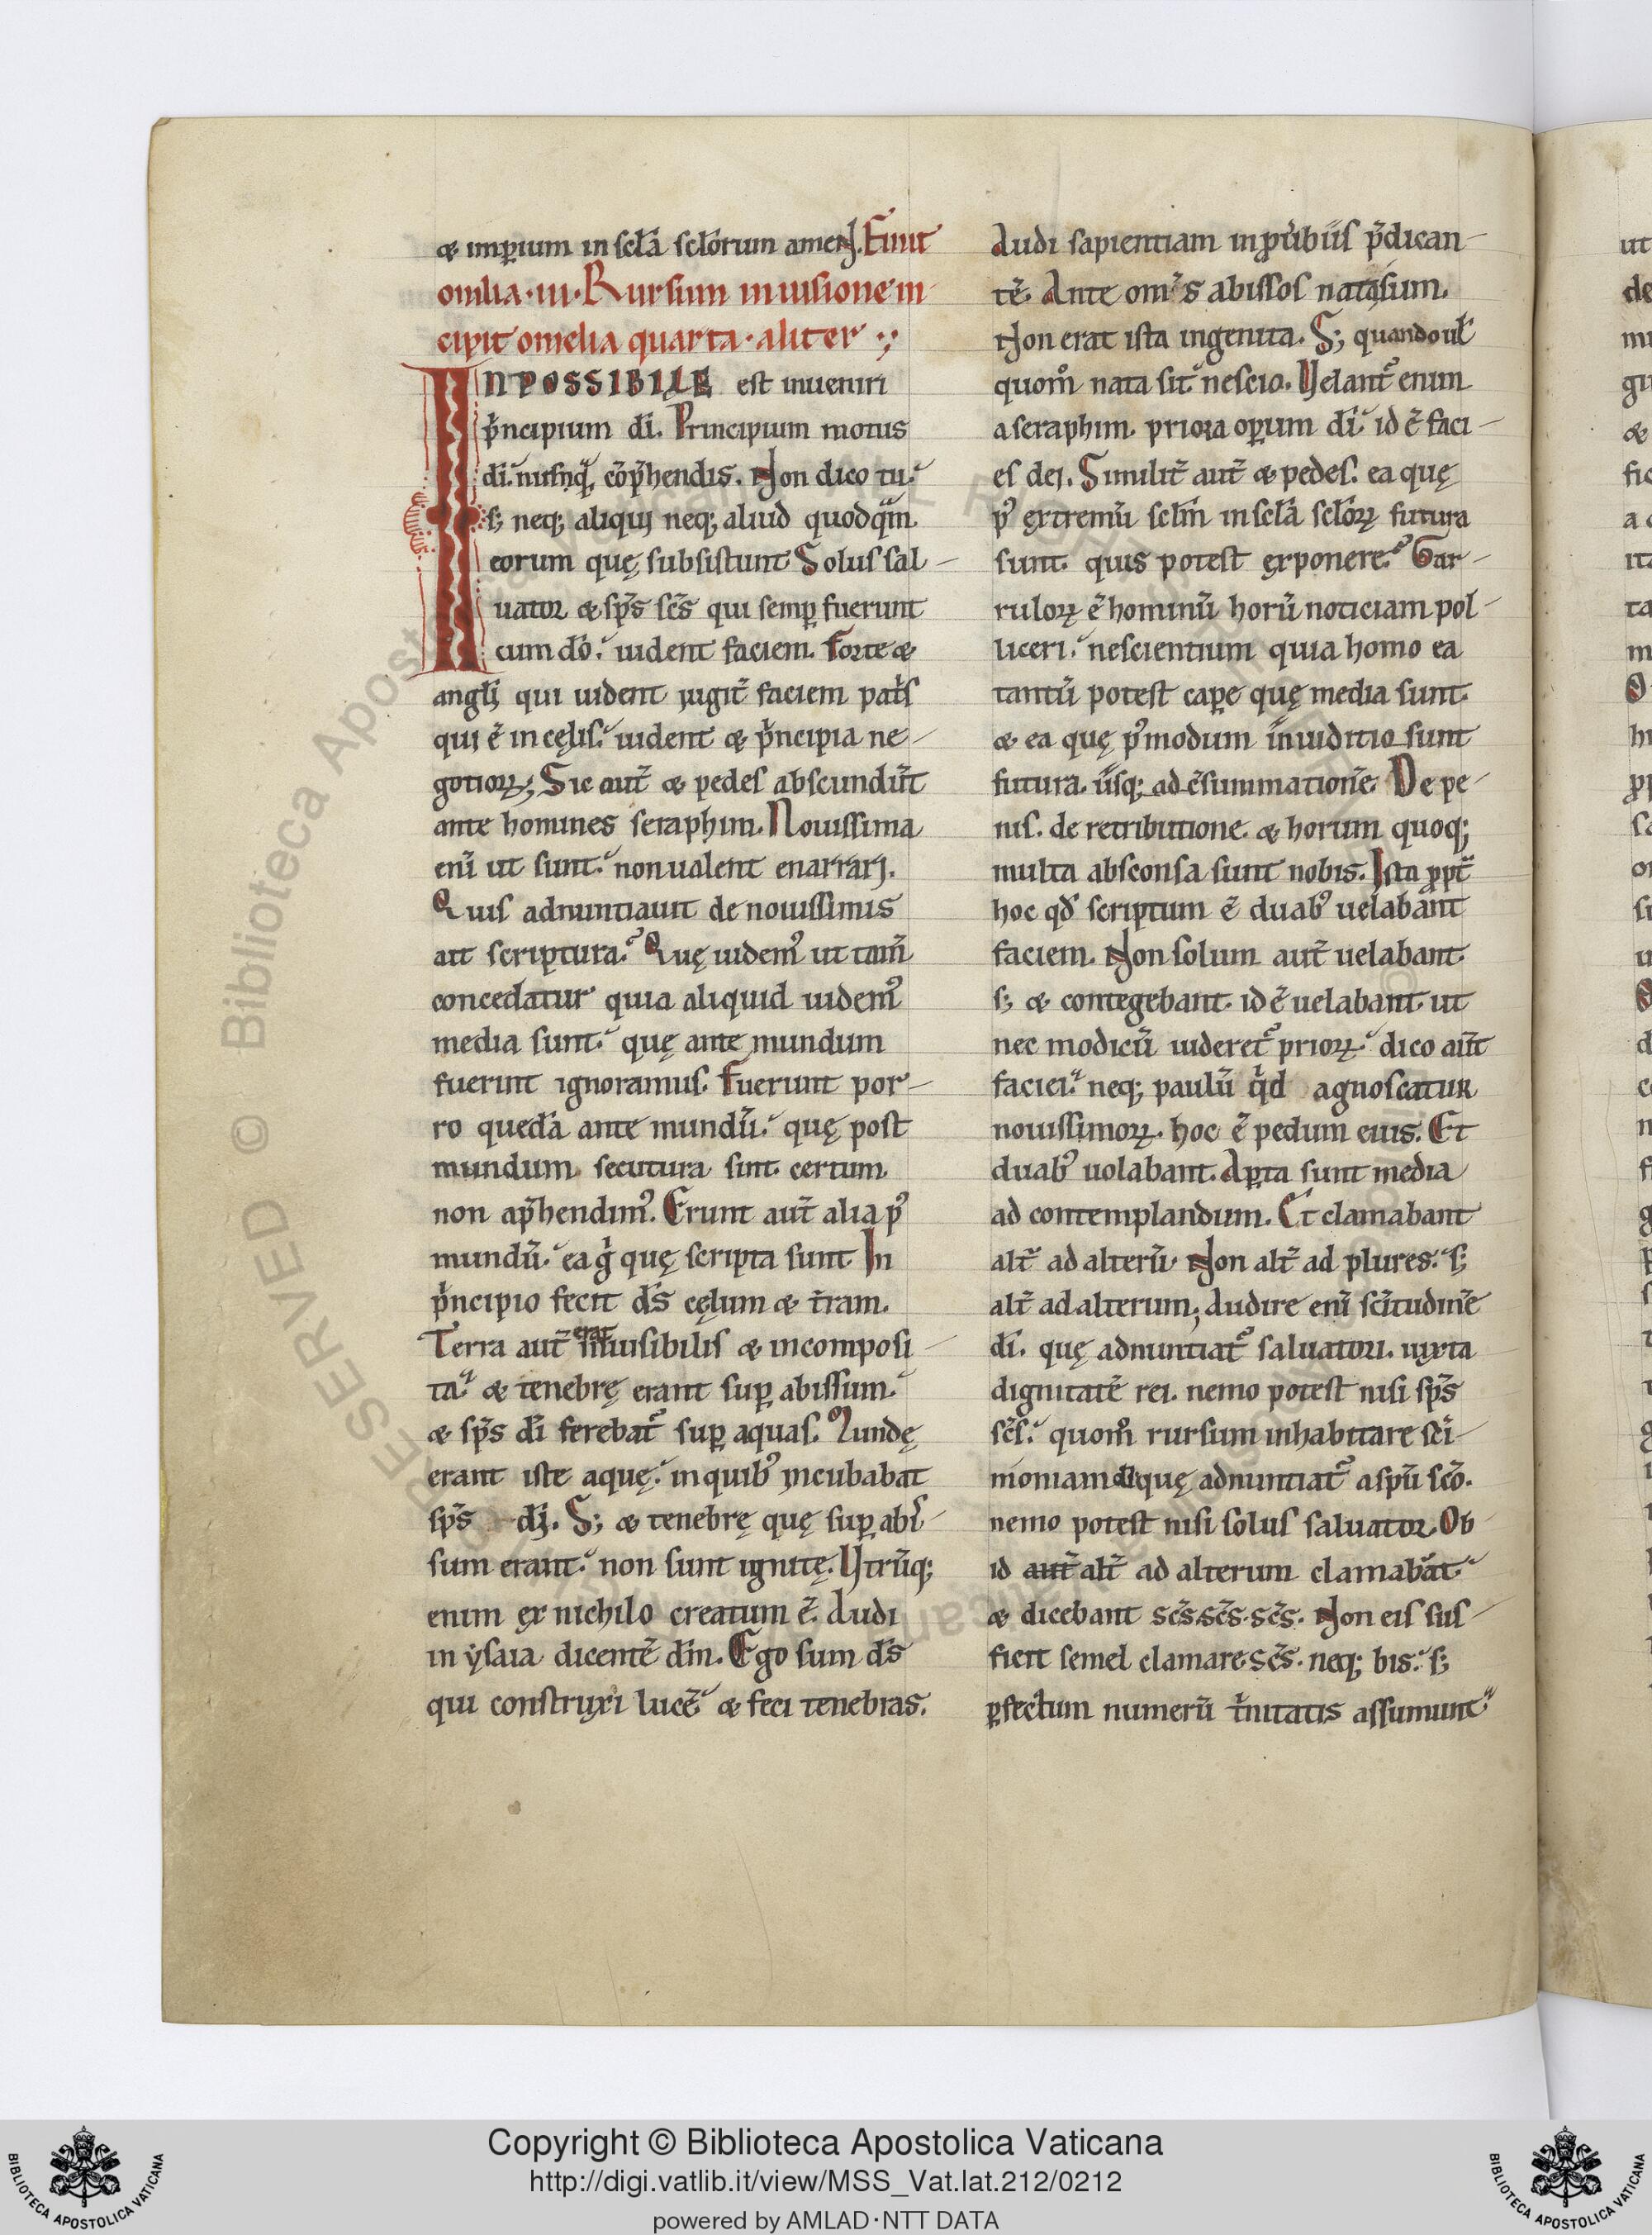 & imꝑium in sclã sclõrum ameN. Finit
omilia · iii · Rursum in uisione in
cipit omelia quarta · aliter
INPOSSIBILE est inueniri
p̃ncipium dī. Principium motus
di. nusꝗ̃ cõp̃hendis. Non dico tu.
s; neq; aliqui neq; aliud quodq̃m
eorum quę subsistunt Solus sal-
uator & sp̃s sc̃s qui semꝑ fuerunt
cum dõ. uident faciem. Forte &
angli qui uident iugit̃ faciem pat̃s
qui ẽ in cęlis. uident & p̃ncipia ne-
gotioꝝ; Sic aut̃ & pedes abscundũt
ante homines seraphim. Nouissima
enĩ ut sunt. non ualent enarrari.
Quis adnuntiauit de nouissimis
ait scriptura. Quę uidem᾽ ut tam̃
concedatur quia aliquid uidem᾽
media sunt. quę ante mundum
fuerint ignoramus. Fuerunt por-
ro quedã ante mundũ. quę post
mundum secutura sint certum
non ap̃hendim᾽. Erunt aut̃ alia p᾽
mundũ. ea g̃ quę scripta sunt In
p̃ncipio fecit ds̃ cęlum & t̃ram.
Terra aut̃ erat inuisibilis & incomposi-
ta. & tenebrę erant suꝑ abissum.
& sp̃s dĩ ferebat᾽ suꝑ aquas. Mundę
erant iste aquę. in quib᾽ incubabat
sp̃s di. S; & tenebrę quę suꝑ abis-
sum erant. non sunt ignitę. Utrũq;
enim ex nichilo creatum ẽ. Audi
in ẏsaia dicentẽ dm̃. Ego sum ds̃
qui construxi lucẽ & feci tenebras.
Audi sapientiam in ꝓuĩbiis p̃dican-
tẽ. Ante om̃s abissos nata sum.
Non erat ista ingenita. S; quando ul̃
quom̊ nata sit nescio. Uelant᾽ enim
a seraphim. priora oꝑum dĩ. id ẽ faci-
es dei. Similit̃ aut̃ & pedes. ea quę
p᾽ extremũ sclm̃ in sclã sclõꝝ futura
sunt. quis potest exponere. Gar-
ruloꝝ ẽ hominũ horũ noticiam pol-
liceri. nescientium quia homo ea
tantũ potest caꝑe quę media sunt.
& ea quę p᾽modum in iuditio sunt
futura. usq; ad cõsummationẽ. De pe-
nis. de retributione. & horum quoq;
multa absconsa sunt nobis. Ista ꝓpt̃
hoc qd̃ scriptum ẽ duab᾽ uelabant
faciem. Non solum aut̃ uelabant.
s; & contegebant. id ẽ uelabant. ut
nec modicũ uideret᾽ prioꝝ. dico aut̃
faciei. neq; paulũ q̃d agnoscatur
nouissimoꝝ. hoc ẽ pedum eius. Et
duab᾽ uolabant. Aꝑta sunt media
ad contemplandum. Et clamabant
alt̃ ad alterũ. Non alt̃ ad plures. s;
alt̃ ad alterum; Audire enĩ scĩtudinẽ
dĩ. quę adnuntiat᾽ saluatori. iuxta
dignitatẽ rei. nemo potest nisi sp̃s
sc̃s. quom̊ rursum inhabitare sci-
moniam quę adnuntiat᾽ a spũ scõ.
nemo potest nisi solus saluator. Ob
id aut̃ alt̃ ad alterum clamabãt
& dicebant sc̃s. sc̃s. sc̃s. Non eis suf-
ficit semel clamare sc̃s. neq; bis. s;
ꝑfectum numerũ t̃nitatis assumunt
Copyright © Biblioteca Apostolica Vaticana
http://digi.vatlib.it/view/MSS_Vat.lat.212/0212
powered by AMLAD·NTT DATA